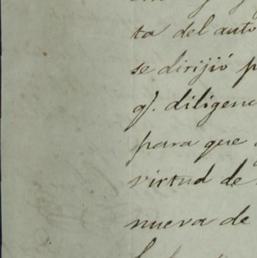 ta del auto
se dirijió p
qͤ. diligenc
para que
virtud de
nueva de